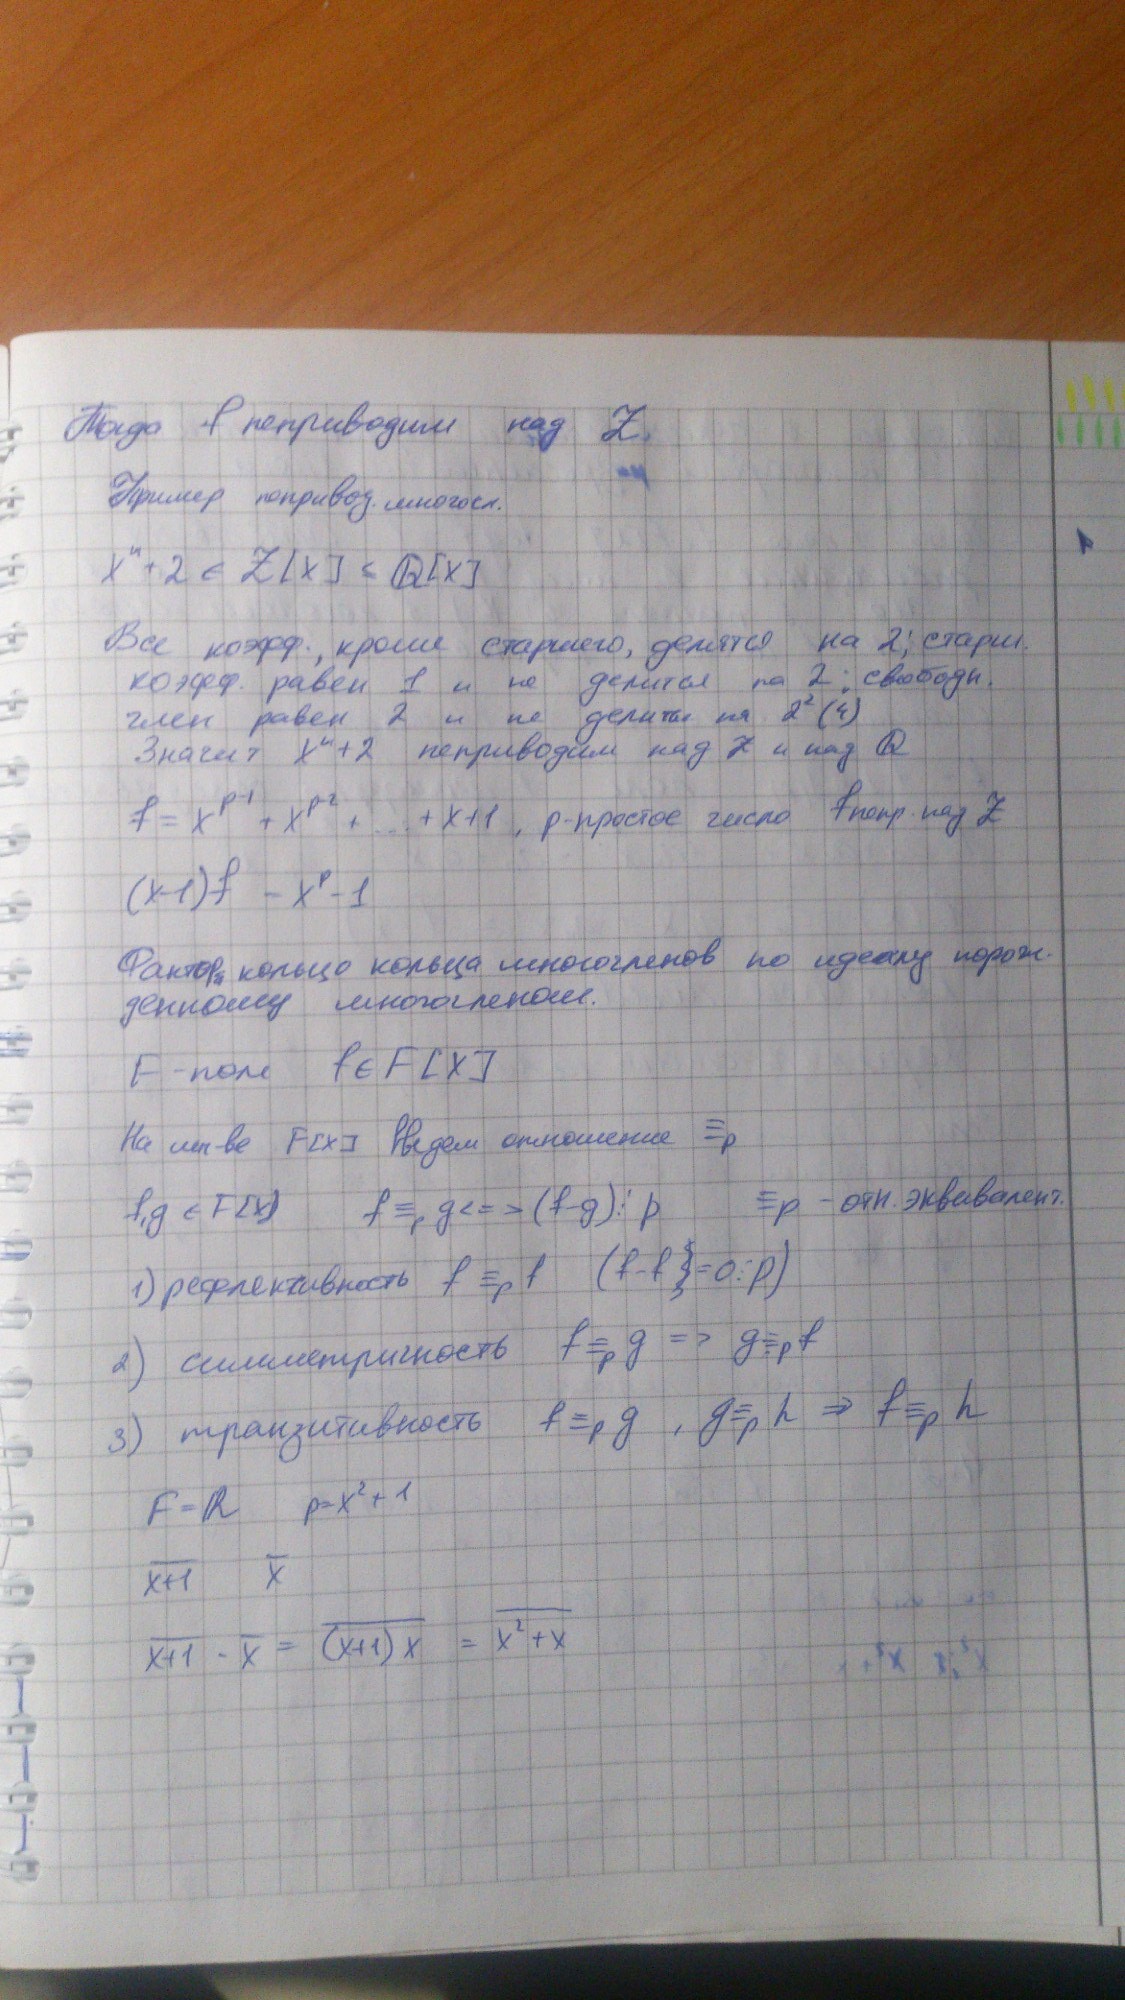 Тогда f неприводим над ℤ.
Пример непривод. многочл.
xⁿ+2 ∈ ℤ[x] ≤ ℚ[x]
Все коэфф., кроме старшего, делятся на 2; старш.
коэфф. равен 1 и не делится на 2; свободн.
член равен 2 и не делится на 2²(4)
Значит xⁿ+2 неприводим над ℤ и над ℚ
f = x^(p-1) + x^(p-2) + ... + x+1, p-простое число f непр. над ℤ
(x-1)f - x^p - 1
Фактор кольцо кольца многочленов по идеалу порож-
денному многочленом.
F - поле f ∈ F[x]
На мн-ве F[x] Введем отношение ≡ₚ
f,g ∈ F[x] f ≡ₚ g <=> (f-g)⋮p ≡ₚ - отн. эквивалент.
1) рефлективность f ≡ₚ f (f-f}=0⋮p)
2) симметричность f ≡ₚ g => g ≡ₚ f
3) транзитивность f ≡ₚ g , g ≡ₚ h ⇒ f ≡ₚ h
F = ℝ p = x² + 1
x̅+̅1̅ x̅
x̅+̅1̅ · x̅ = (̅x̅+̅1̅)̅x̅ = x̅²̅+̅x̅